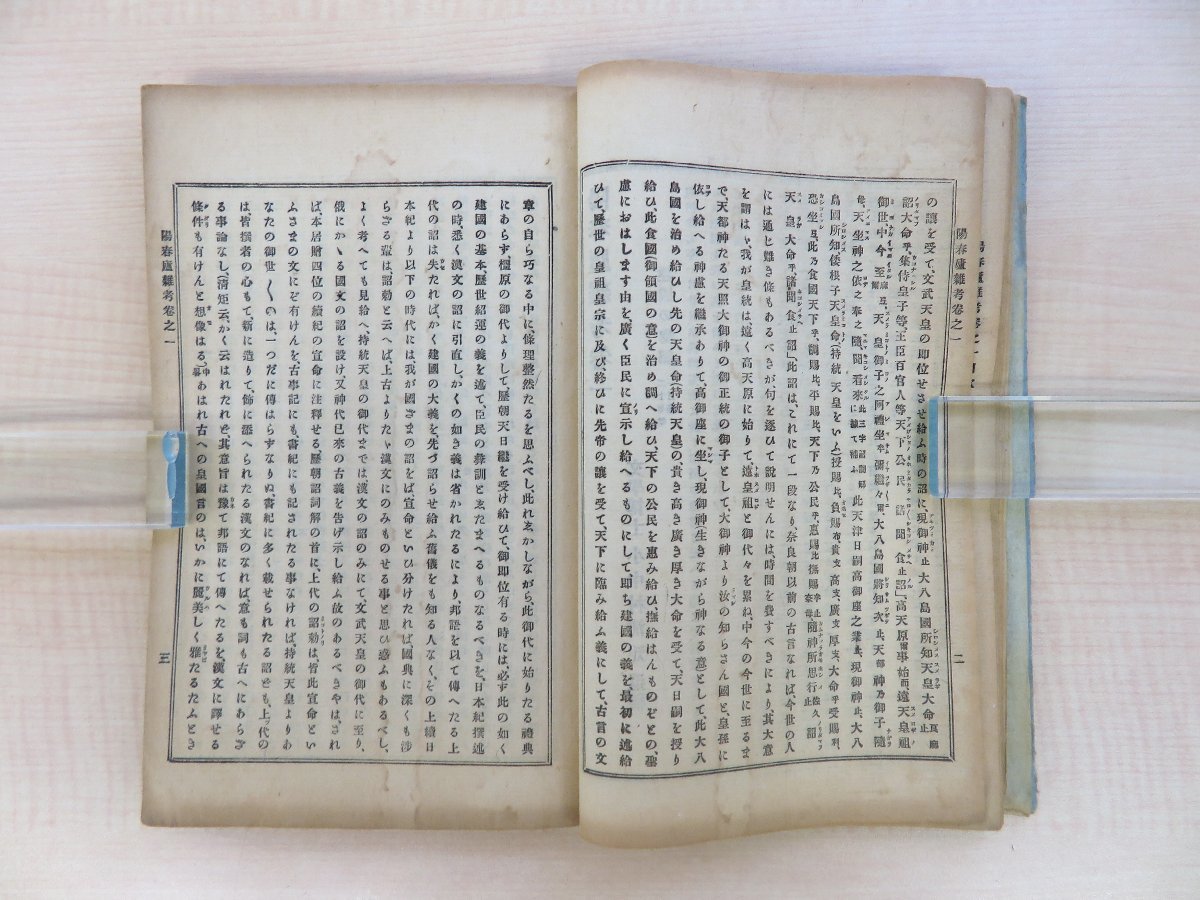 陽春廬雜考卷之一
二
の讓を受て、文武天皇の即位せさせ給ふ時の詔に、現御神止大八島國所知天皇大命
詔大命乎、集侍皇子等、王臣百官人等、天下公民、諸聞食止詔、高天原爾事始而、遠天皇祖
御世、中今至
天皇御子之阿禮坐牟彌繼々爾、大八島國將知次止、天都神乃御子隨
母、天坐神之依之奉之隨、聞看來
此天津日嗣高御座之業止、現御神止、大八
島國所知倭根子天皇命(持統天皇をいふ)授賜比、負賜布、貴支、高支、廣支、厚支、大命乎受賜利、
恐坐弖、此乃食國天下乎、調賜比、平賜比、天下乃公民乎、惠賜比撫賜
隨神所思行
佐久、詔
天皇大命乎、諸聞食止詔、此詔は、これにて一段なり、奈良朝以前の古言なれば、今世の人
には通じ難き條もあるべきが、句を逐ひて說明せんには、時間を費すべきにより、其大意
を謂はゞ、我が皇統は、遠く高天原に始りて、遠皇祖と御代々を累ね、中今の今世に至るま
で、天都神たる天照大御神の御正統の御子として、大御神より、汝の知らさん國と、皇孫に
依し給へる神慮を繼承ありて、高御座に坐し、現御神(生きながら神なる意)として、此大八
島國を治め給ひし先の天皇命(持統天皇)の貴き高き廣き厚き大命を受て、天日嗣を授り
給ひ、此食國(御領國の意)を治め調へ給ひ、天下の公民を惠み給ひ撫給はんものぞとの、聖
慮におはします由を、廣く臣民に宣示し給へるものにして、即ち建國の義を、最初に述給
ひて、歷世の皇祖皇宗に及び、終ひに先帝の讓を受て、天下に臨み給ふ義にして、古言の文
章の自ら巧なる中に、條理整然たるを思ふべし、此れゑかしながら、此御代に始りたる禮典
にあらず、橿原の御代よりして、歷朝天日繼を受け給ひて、御即位有る時には、必ず此の如く
建國の基本、歷世紹運の義を述て、臣民の彝訓とゑたまへるものなるべきを、日本紀撰述
の時、悉く漢文の詔に引直し、かくの如き義は省かれたるにより、邦語を以て傳へたる上
代の詔は失たれば、かく建國の大義を、先づ詔らせ給ふ舊儀をも知る人なく、その上續日
本紀より以下の時代には、我が國ざまの詔をば宣命といひ分けたれば、國典に深くも涉
らざる輩は、詔勅と云へば、上古よりたゞ漢文にのみものせる事と思ひ惑ふもあるべし、
よく考へても見給へ、持統天皇の御代までは、漢文の詔のみにて、文武天皇の御代に至り、
俄にかゝる國文の詔を設け、又神代已來の古義を告げ示し給ふ故のあるべきやは、され
ば本居贈四位の續紀の宣命に注釋せる歷朝詔詞解の首に、上代の詔勅は、皆此宣命とい
ふさまの文にぞ有けんを、古事記にも、書紀にも記されたる事なければ、持統天皇よりあ
なたの御世〱のは、一つだに傳はらずなりぬ、書紀に多く載せられたる詔ども、上ッ代の
は、皆撰者の心もて、新に造りて、飾に添へられたる漢文のなれば、意も詞も古へにあらざ
る事論なし、(清矩云、かく云はれたれど、其意旨は、豫て邦語にて傳へたるを、漢文に譯せる
條件も有けんと想像はる)(中略)あはれ古への皇國言のは、いかに麗美しく雅たるたふとき
陽春廬雜考卷之一
三